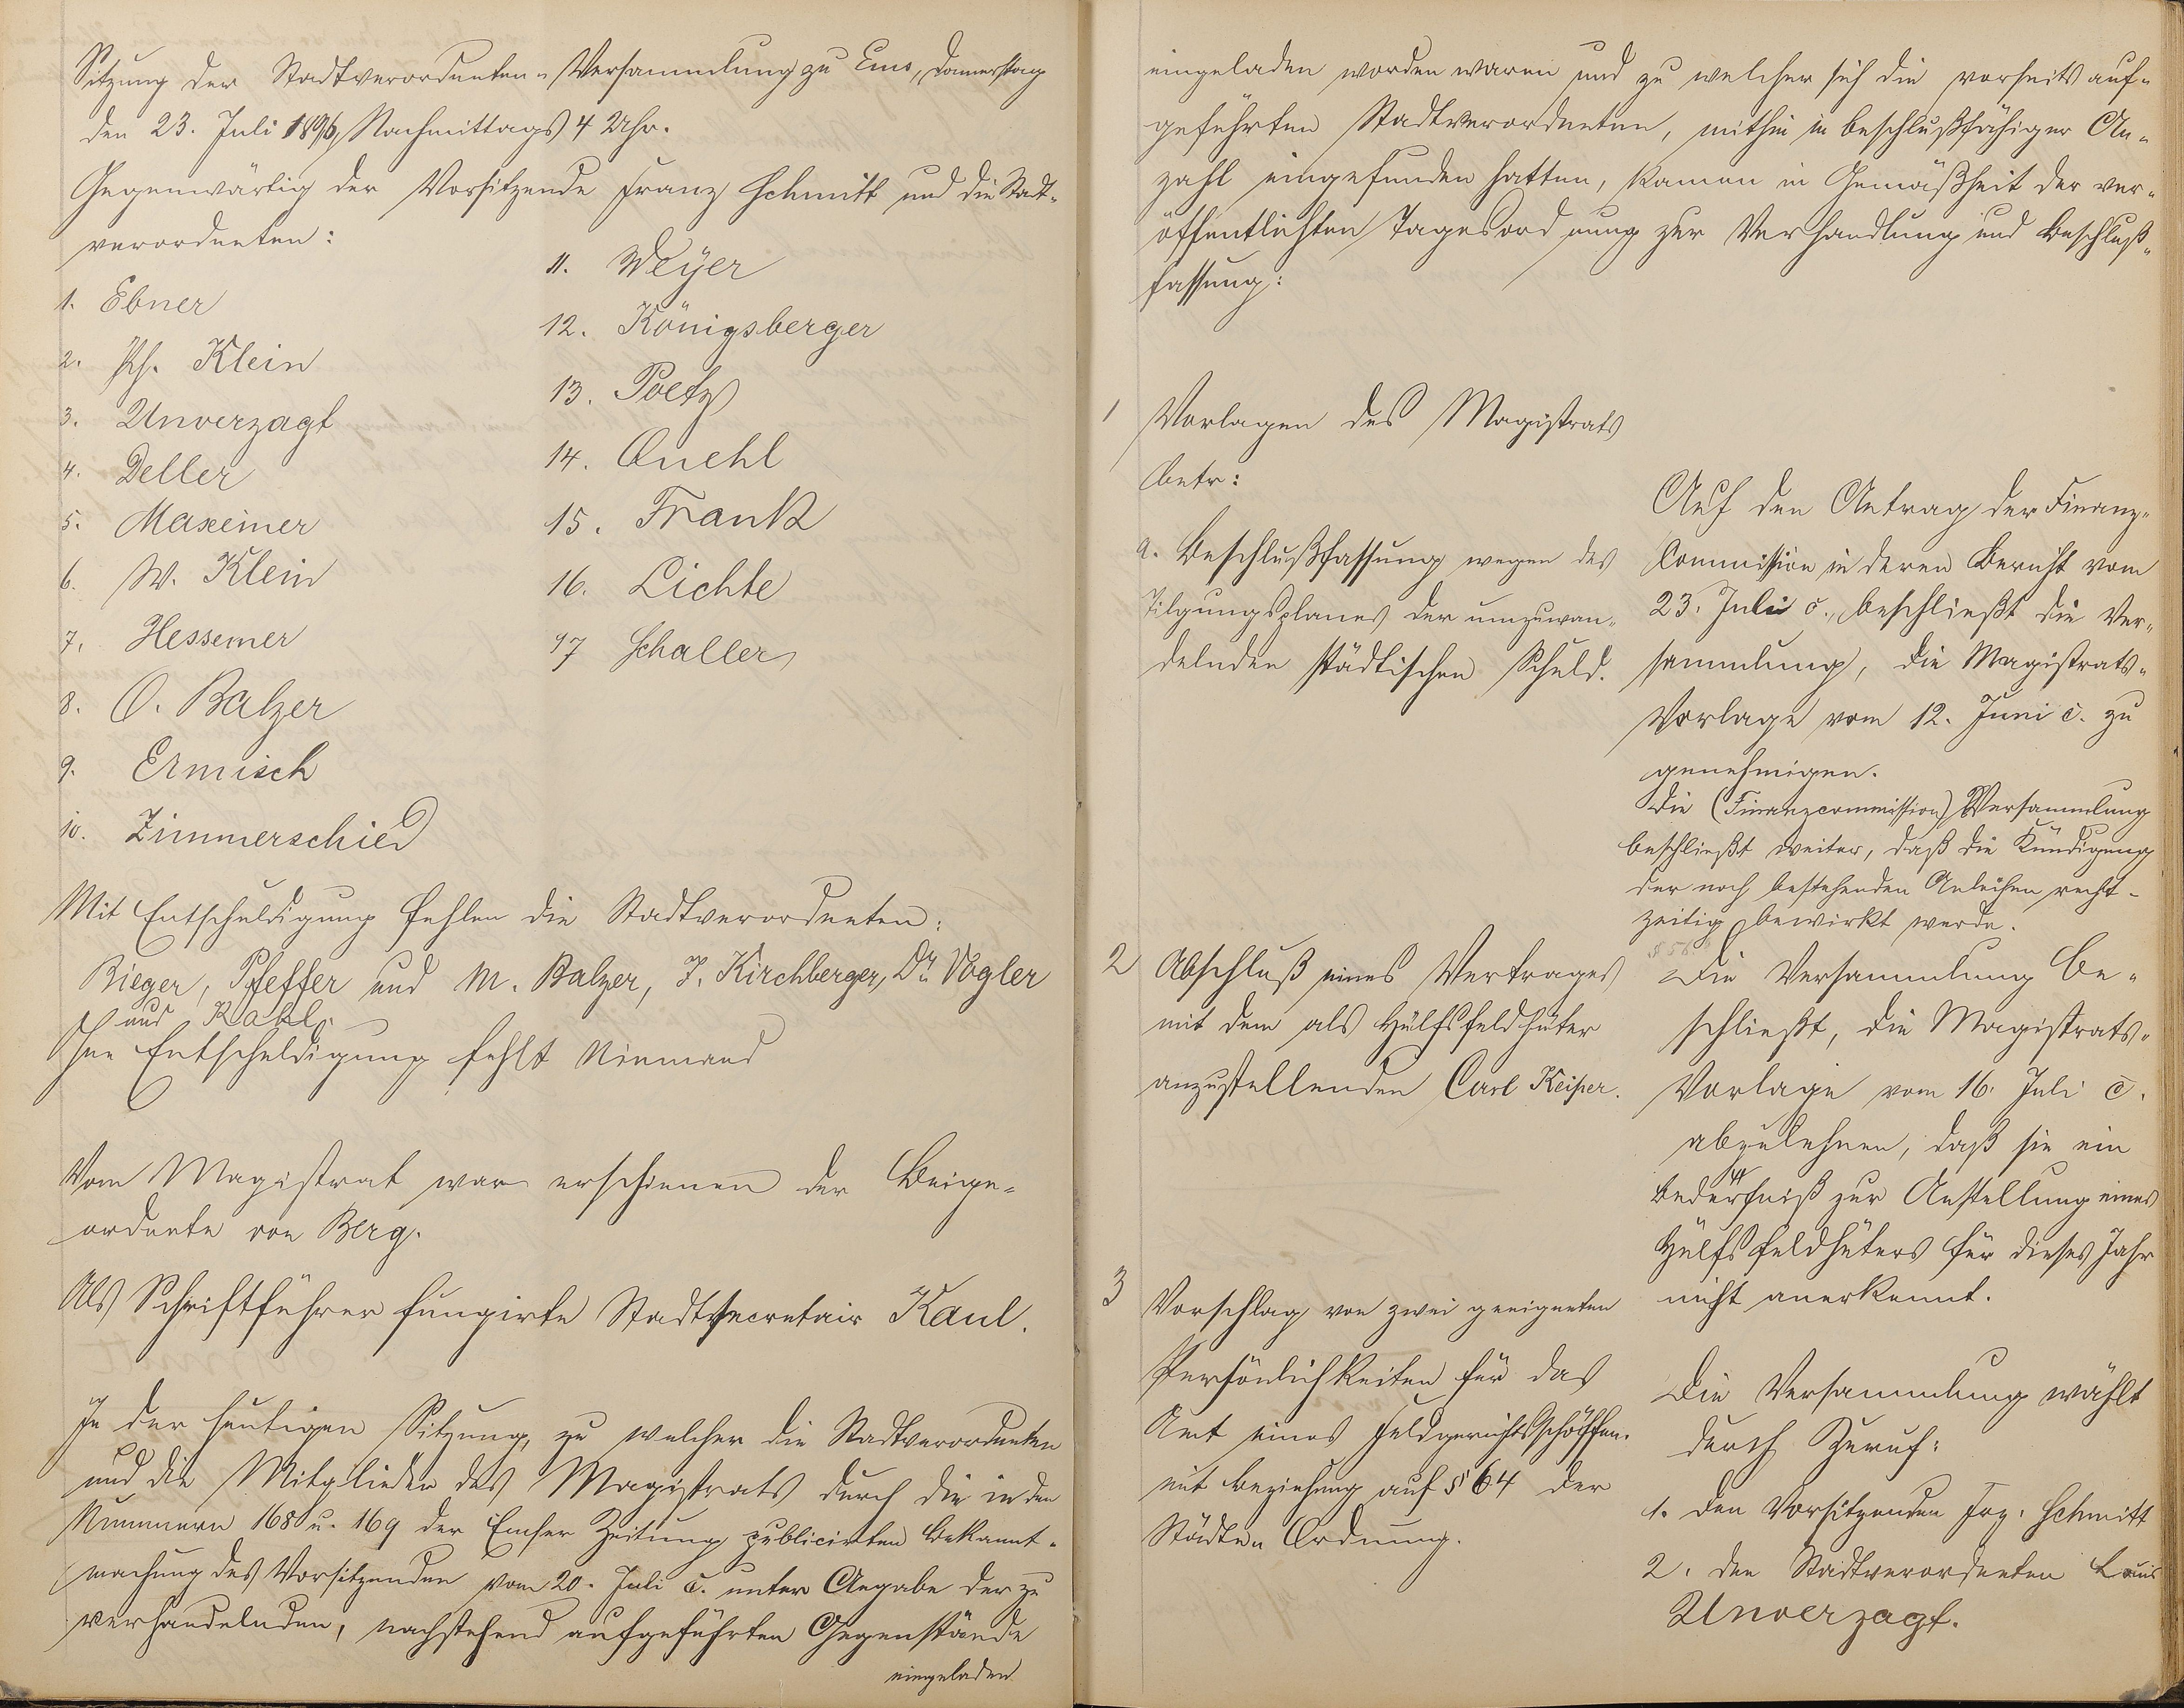 Sitzung der Stadtverordneten-Versammlung zu Ems, Donnerstag
den 23. Juli 1896, Nachmittags 4 Uhr.
Gegenwärtig der Vorsitzende Franz Schmitt und die Stadt-
verordneten:
1. Ebner
2. Ph. Klein
3. Unverzagt
4. Deller
5. Maxeiner
6. W. Klein
7. Hessemer
8. O. Balzer
9. Ermisch
10. Zimmerschied
11. Weyer
12. Königsberger
13. Poetz
14. Quehl
15. Frank
16. Lichte
17 Schaller
Mit Entschuldigung fehlen die Stadtverordneten:
Rieger, Pfeffer und M. Balzer, J. Kirchberger, Dr. Vogler
und Rakl.
Ohne Entschuldigung fehlt Niemand
Vom Magistrat war erschienen der Beige-
ordnete von Berg.
Als Schriftführer fungirte Stadtsecretair Kaul.
In der heutigen Sitzung, zu welcher die Stadtverordneten
und die Mitglieder des Magistrats durch die in den
Nummern 168 u. 169 der Emser Zeitung publicirten Bekannt-
machung des Vorsitzenden vom 20. Juli c. unter Angabe der zu
verhandelnden, nachstehend aufgeführten Gegenstände
eingeladen
eingeladen worden waren und zu welcher sich die vorseits auf-
geführten Stadtverordneten, mithin in beschlußfähiger An-
zahl eingefunden hatten, kamen in Gemäßheit der ver-
öffentlichten Tagesordnung zur Verhandlung und Beschluß-
fassung:
1 Vorlagen des Magistrats
betr:
a. Beschlußfassung wegen des
Tilgungsplanes der umzuwan-
delnden städtischen Schuld.
Auf den Antrag der Finanz-
Commission in deren Bericht vom
23. Juli c., beschließt die Ver-
sammlung, die Magistrats-
Vorlage vom 12. Juni c. zu
genehmigen.
Die (Finanzcommission) Versammlung
beschließt weiter, daß die Kündigung
der noch bestehenden Anleihen recht-
zeitig bewirkt werde.
2 Abschluß eines Vertrages
mit dem als Hülfsfeldhüter
anzustellenden Carl Keiper.
Die Versammlung be-
schließt, die Magistrats-
Vorlage vom 16. Juli c.
abzulehnen, daß sie ein
Bedürfniß zur Anstellung eines
Hülfsfeldhüters für dieses Jahr
nicht anerkennt.
3 Vorschlag von zwei geeigneten
Persönlichkeiten für das
Amt eines Feldgerichtsschöffen.
mit Beziehung auf § 64 der
Städte-Ordnung.
Die Versammlung wählt
durch Zuruf:
1. den Vorsitzenden Frz. Schmitt
2. den Stadtverordneten Louis
Unverzagt.